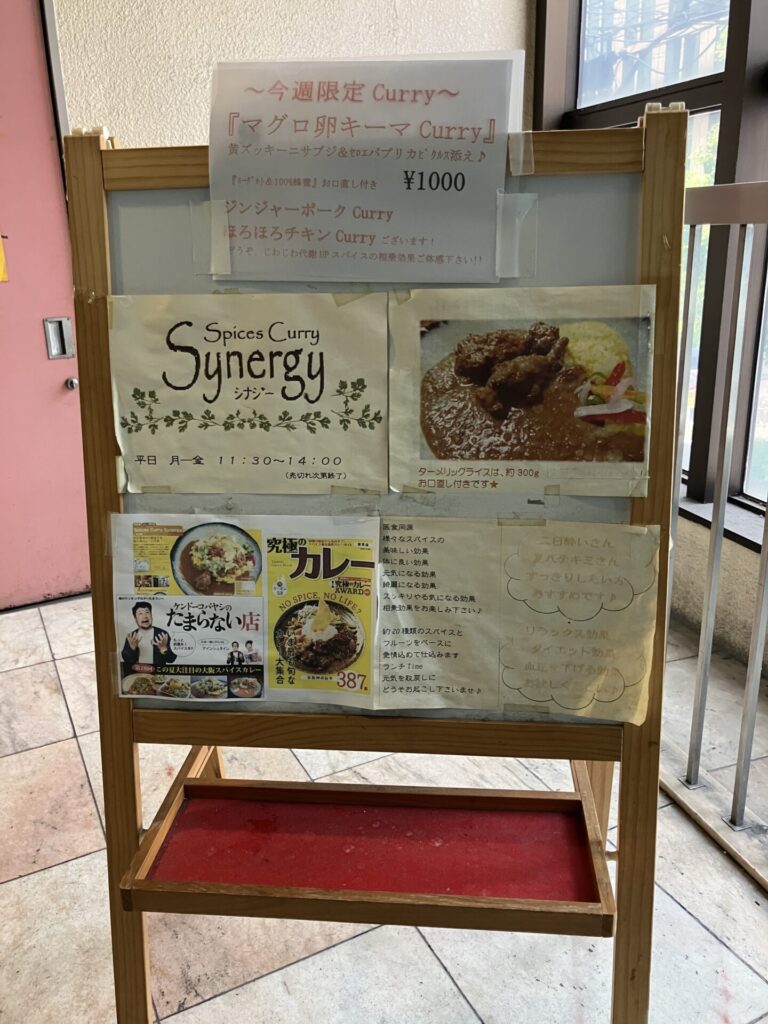 ～今週限定 Curry～
『マグロ卵キーマ Curry』
黄ズッキーニサブジ&ｾﾛｴパプリカﾋﾟｸﾙｽ添え♪
『ﾖｰｸﾞﾙﾄ&100%蜂蜜』お口直し付き ¥1000
ジンジャーポーク Curry
ほろほろチキン Curry ございます！
どうぞ、じわじわ代謝UPスパイスの相乗効果ご体感下さい!!
Spices Curry
Synergy
シナジー
平日 月―金 11:30～14:00
(売切れ次第終了)
ターメリックライスは、約300g
お口直し付きです★
ケンドーコバヤシの
たまらない店
この夏大注目の大阪スパイスカレー
究極の
カレー
究極のカレー
AWARD
NO SPICE, NO LIFE?
大集合
387
医食同源
様々なスパイスの
美味しい効果
体に良い効果
元気になる効果
綺麗になる効果
スッキリやる気になる効果
相乗効果をお楽しみ下さい♪
約20種類のスパイスと
フルーツをベースに
愛情込めて仕込みます
ランチTime
元気を取戻しに
どうぞお起こし下さいませ♪
二日酔いさん
夏バテギミさん
すっきりしたい人
おすすめです♪
リラックス効果
ダイエット効果
血圧下げる効果
お試しください♪